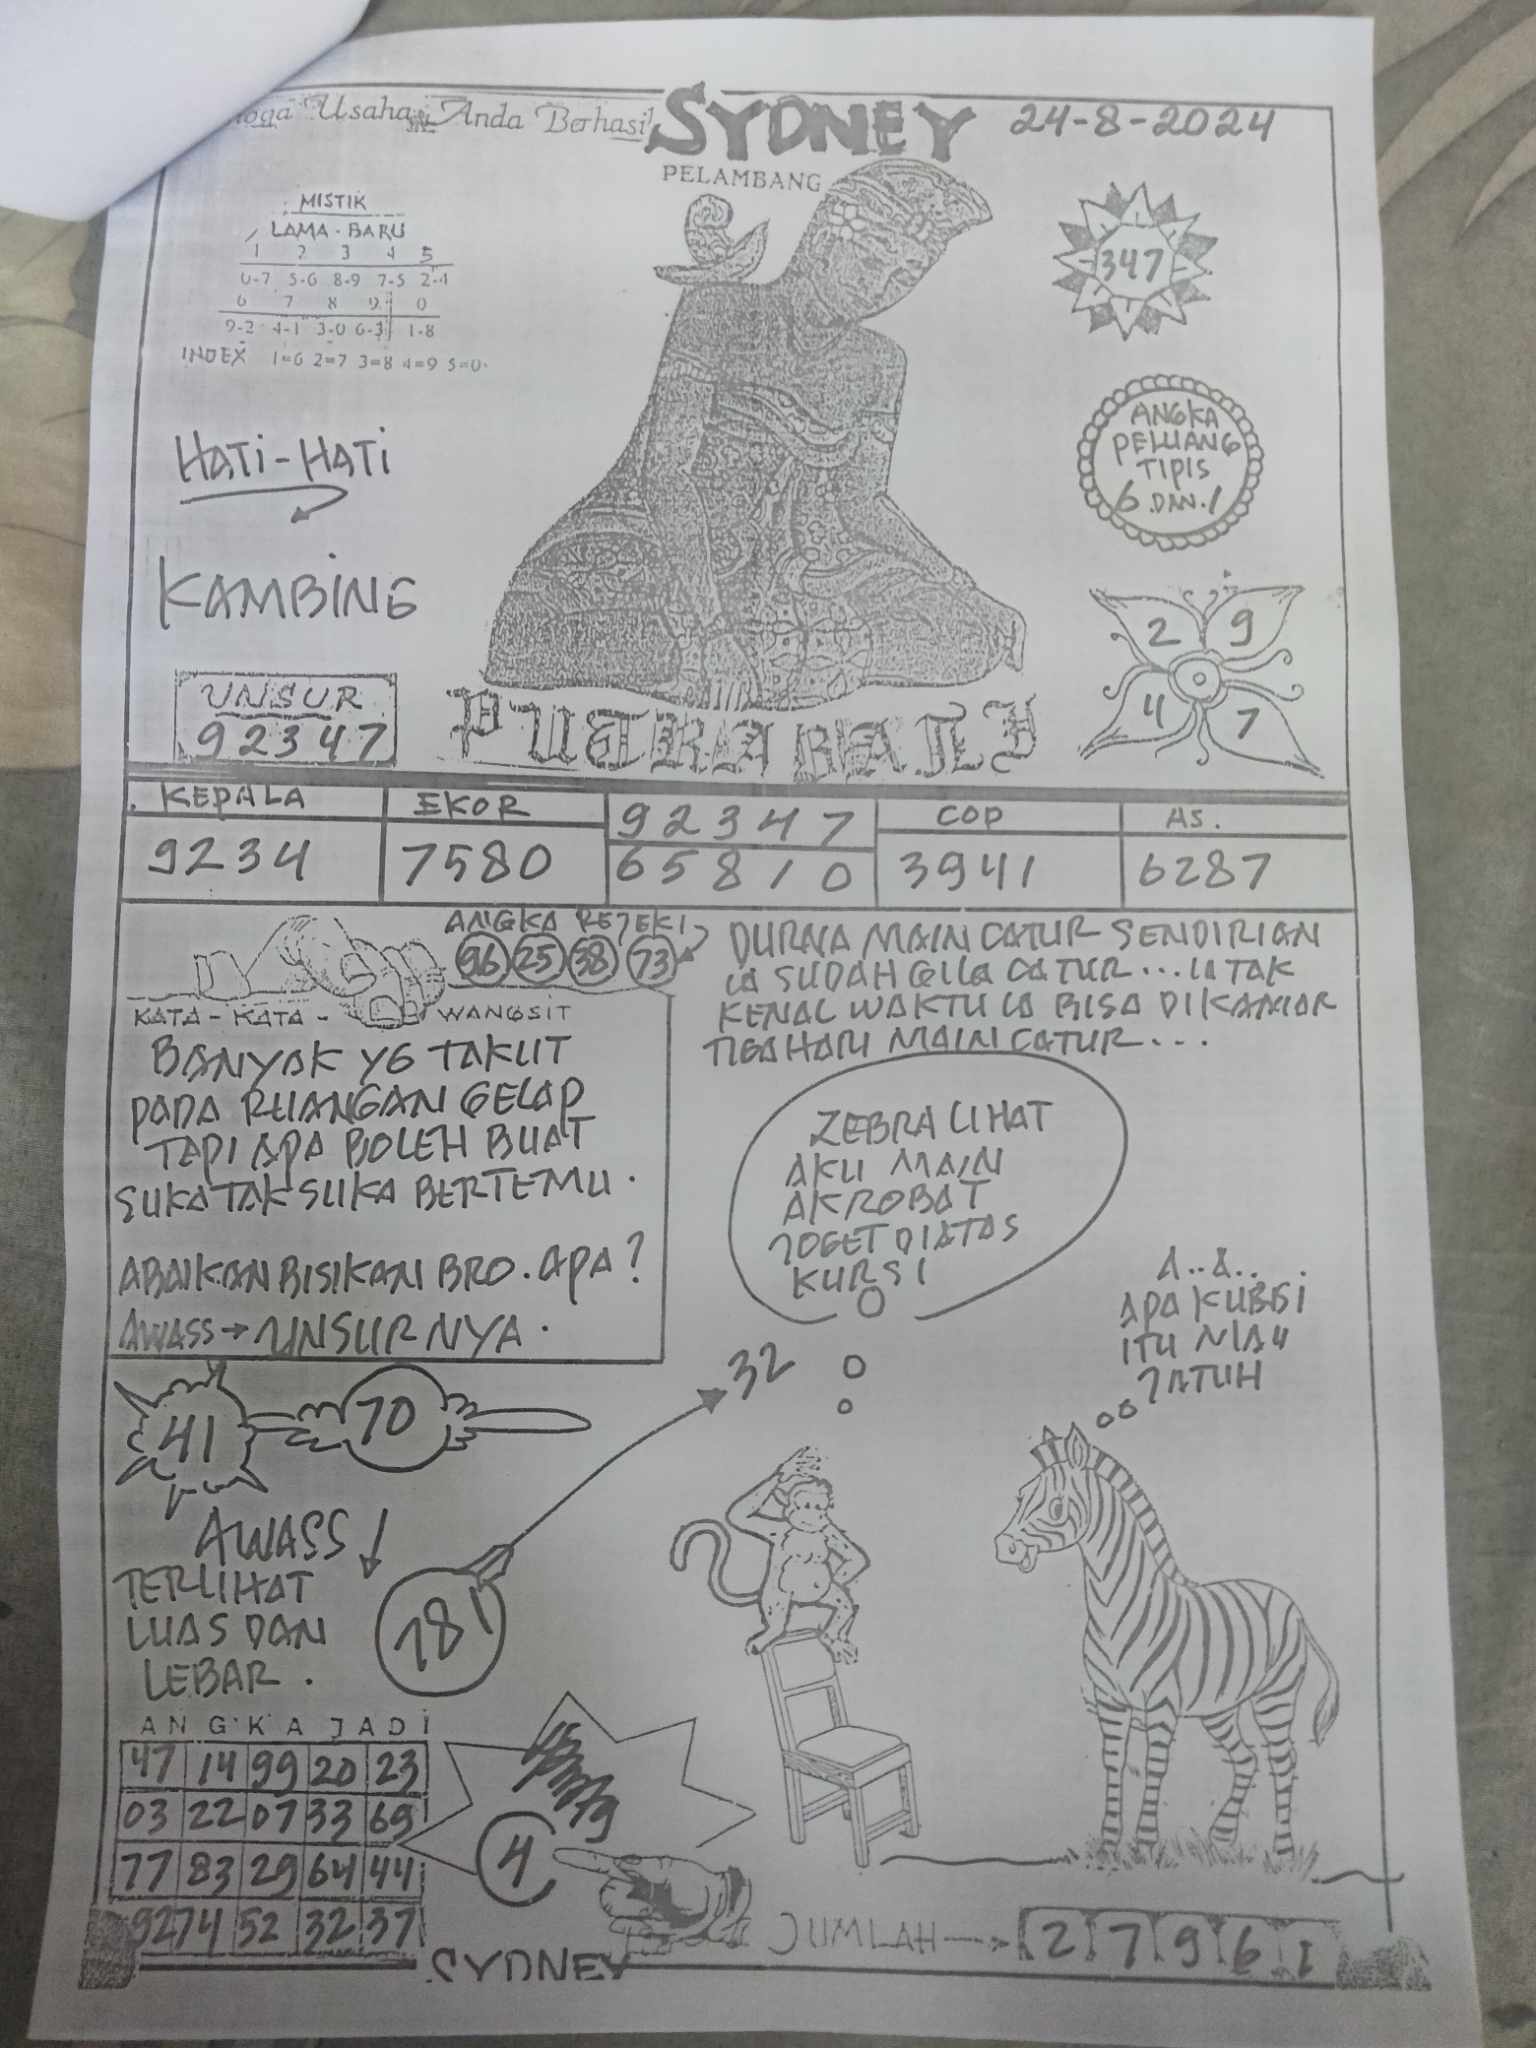 Usaha Anda Berhasil
SYDNEY
24-8-2024
PELAMBANG
MISTIK
LAMA - BARU
1 2 3 4 5
0-7 5-6 8-9 7-5 2-4
6 7 8 9 0
9-2 4-1 3-0 6-3 1-8
INDEX 1=6 2=7 3=8 4=9 5=0
347
ANGKA
PELUANG
TIPIS
6 .DAN. 1
HATI-HATI
KAMBING
2 9
4 7
UNSUR
92347
PUTRA BALI
KEPALA
9234
EKOR
7580
92347
65810
COP
3941
AS.
6287
ANGKA REJEKI
96 25 38 73
KATA - KATA - WANGSIT
BANYAK YG TAKUT
PADA RUANGAN GELAP
TAPI APA BOLEH BUAT
SUKA TAK SUKA BERTEMU.
ABAIKAN BISIKAN BRO. APA?
AWASS → UNSURNYA.
DURNA MAIN CATUR SENDIRIAN
IA SUDAH GILA CATUR... IA TAK
KENAL WAKTU IA BISA DIKAMAR
TIGA HARI MAIN CATUR...
ZEBRA LIHAT
AKU MAIN
AKROBAT
JOGET DIATAS
KURSI
A..A..
APA KURSI
ITU MAU
JATUH
41
70
32
AWASS
TERLIHAT
LUAS DAN
LEBAR.
781
ANGKA JADI
47 14 99 20 23
03 22 07 33 69
77 83 29 64 44
92 74 52 32 37
4
SYDNEY
JUMLAH
2 7 9 6 1